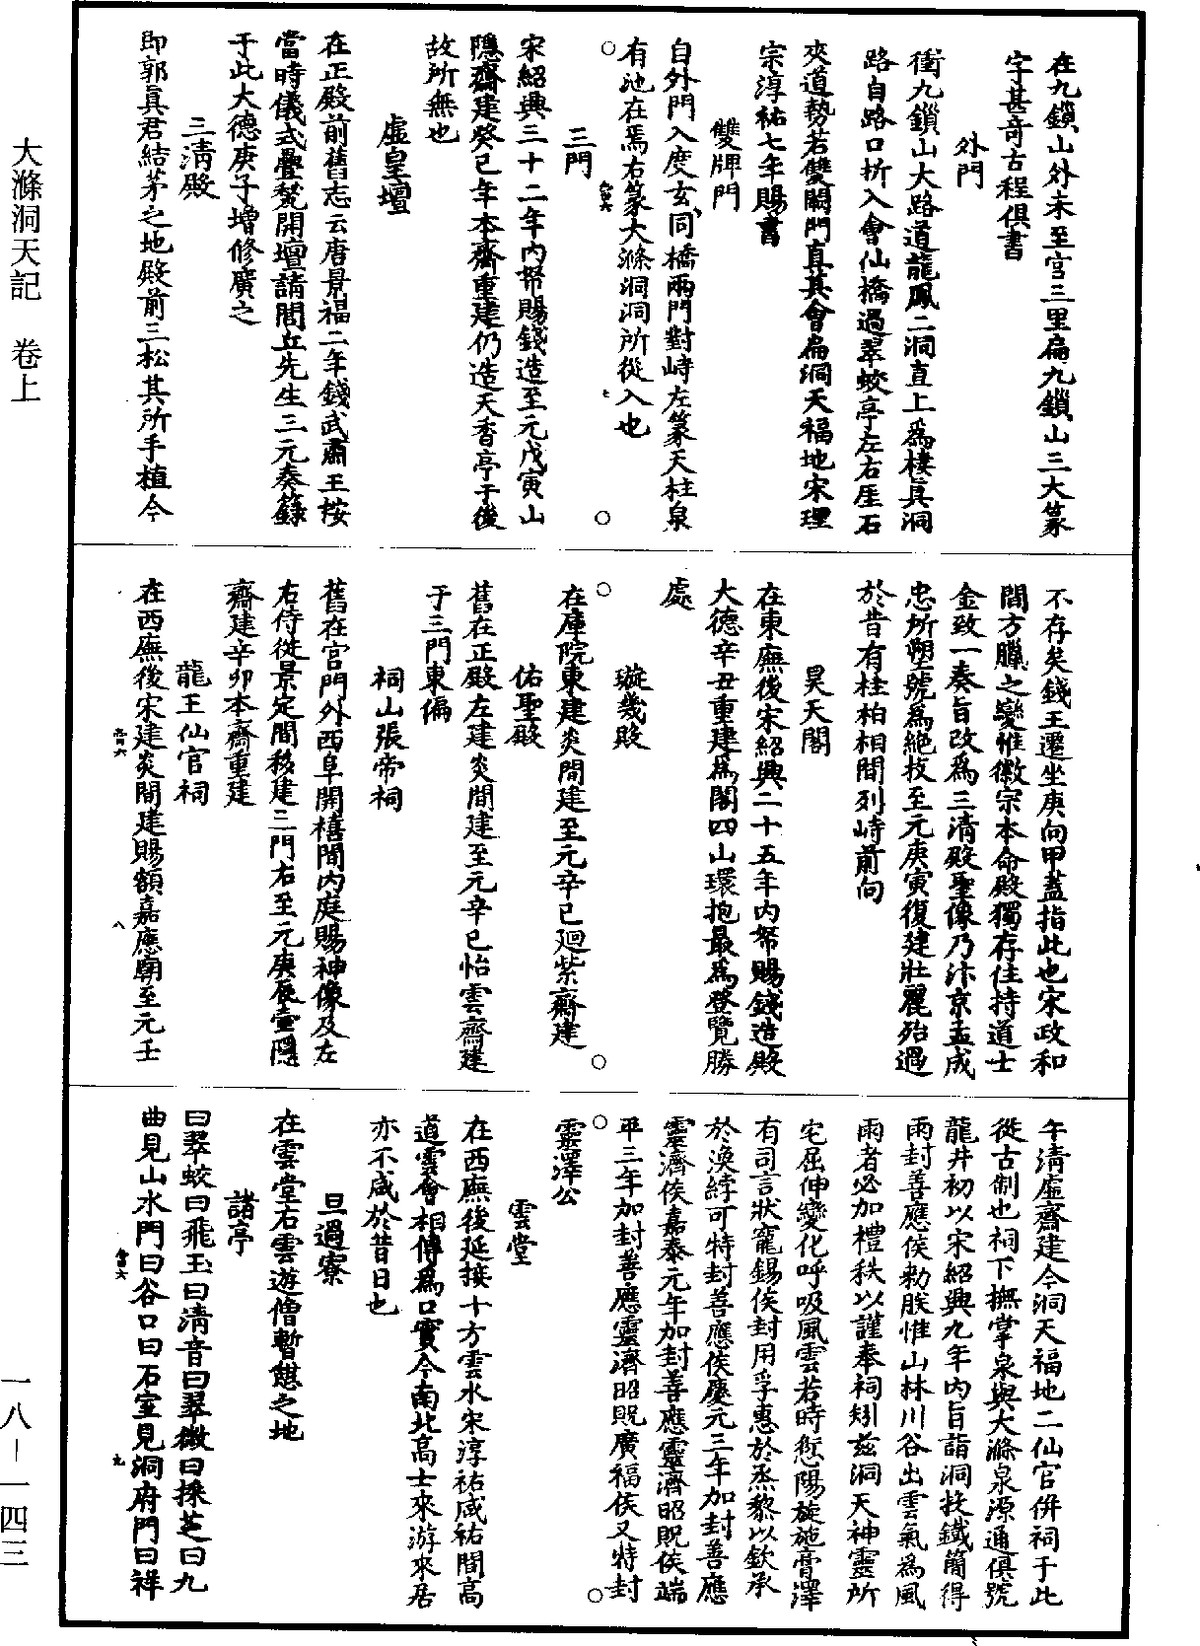 在九鎖山外未至宮三里扁九鎖山三大篆
字甚奇古程俱書
外門
衝九鎖山大路道龍鳳二洞直上爲棲真洞
路自路口折入會仙橋過翠蛟亭左右厓石
夾道勢若雙闕門真其會扁洞天福地宋理
宗淳祐七年賜書
雙牌門
自外門入度玄同橋兩門對峙左篆天柱泉
有池在焉右篆大滌洞洞所從入也
三門
宋紹興三十二年內帑賜錢造至元戊寅山
隱齋建癸巳年本齋重建仍造天香亭于後
故所無也
虛皇壇
在正殿前舊志云唐景福二年錢武肅王按
當時儀式疊甃開壇請閭丘先生三元奏籙
于此大德庚子增修廣之
三清殿
即郭真君結茅之地殿前三松其所手植今
不存矣錢王遷坐庚向甲蓋指此也宋政和
間方臘之變惟徽宗本命殿獨存住持道士
金致一奏旨改爲三清殿聖像乃汴京孟成
忠所塑號爲絕技至元庚寅復建壯麗殆過
於昔有桂柏相間列峙前向
昊天閣
在東廡後宋紹興二十五年內帑賜錢造殿
大德辛丑重建爲閣四山環抱最爲登覽勝
處
璇璣殿
在庫院東建炎間建至元辛巳廻紫齋建
佑聖殿
舊在正殿左建炎間建至元辛巳怡雲齋建
于三門東偏
祠山張帝祠
舊在宮門外西阜開禧間內庭賜神像及左
右侍從景定間移建二門右至元庚辰壺隱
齋建辛卯本齋重建
龍王仙官祠
在西廡後宋建炎間建賜額嘉應廟至元壬
午清虛齋建今洞天福地二仙官併祠于此
從古制也祠下撫掌泉與大滌泉源通俱號
龍井初以宋紹興九年內旨詣洞投鐵簡得
雨封善應侯勑朕惟山林川谷出雲氣爲風
雨者必加禮秩以謹奉祠矧茲洞天神靈所
宅屈伸變化呼吸風雲若時愆陽旋施膏澤
有司言狀寵錫侯封用孚惠於烝黎以欽承
於渙綍可特封善應侯慶元三年加封善應
靈濟侯嘉泰元年加封善應靈濟昭貺侯端
平三年加封善應靈濟昭貺廣福侯又特封
靈澤公
雲堂
在西廡後延接十方雲水宋淳祐咸祐間高
道雲會相傳爲口實今南北高士來游來居
亦不咸於昔日也
旦過寮
在雲堂右雲遊僧暫憇之地
諸亭
曰翠蛟曰飛玉曰清音曰翠微曰採芝曰九
曲見山水門曰谷口曰石室見洞府門曰祥
大滌洞天記　卷上
一八－一四三